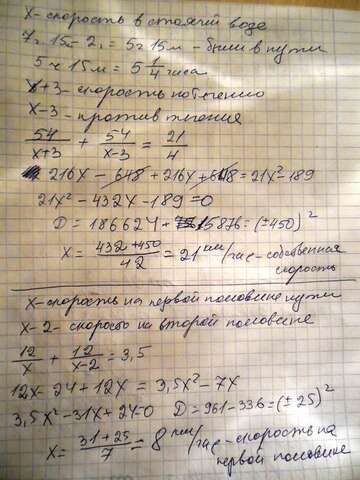 X - скорость в стоячей воде
7ч 15м - 2ч = 5ч 15м - были в пути
5ч 15м = 5 1/4 часа
X+3 - скорость по течению
X-3 - против течения
54/(x+3) + 54/(x-3) = 21/4
216X - 648 + 216X + 648 = 21X² - 189
21X² - 432X - 189 = 0
D = 186624 + 15876 = (±450)²
X = (432+450)/42 = 21 км/час - собственная
скорость
X - скорость на первой половине пути
X-2 - скорость на второй половине
12/X + 12/(X-2) = 3,5
12X - 24 + 12X = 3,5X² - 7X
3,5X² - 31X + 24 = 0 D = 961 - 336 = (±25)²
X = (31+25)/7 = 8 км/час - скорость на
первой половине